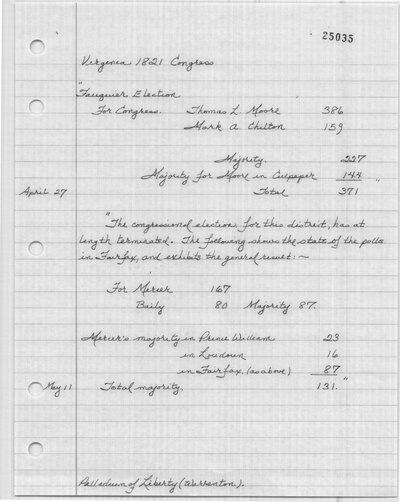 25035
Virginia 1821 Congress
"Fauquier Election
For Congress. Thomas L. Moore 386
Mark A Chilton 159
Majority. 227
Majority for Moore in Culpeper 144
April 27 Total 371 "
"The congressional election, for this district, has at
length terminated. The following shows the state of the polls
in Fairfax, and exhibits the general result: ~
For Mercer 167
Baily 80 Majority 87.
Mercer's majority in Prince William 23
in Loudoun 16
in Fairfax, (as above) 87
May 11 Total majority, 131."
Palladium of Liberty (Warrenton).